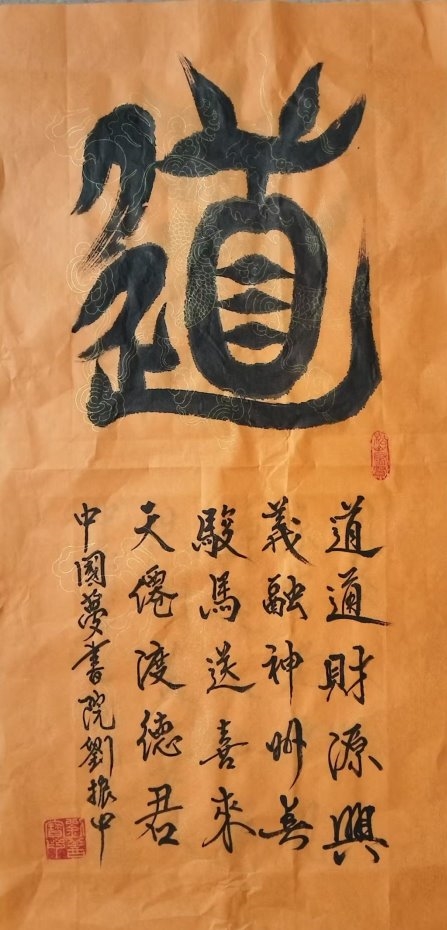 道
道通財源興
義融神州美
駿馬送喜來
天僊渡德君
中國夢書院劉振中